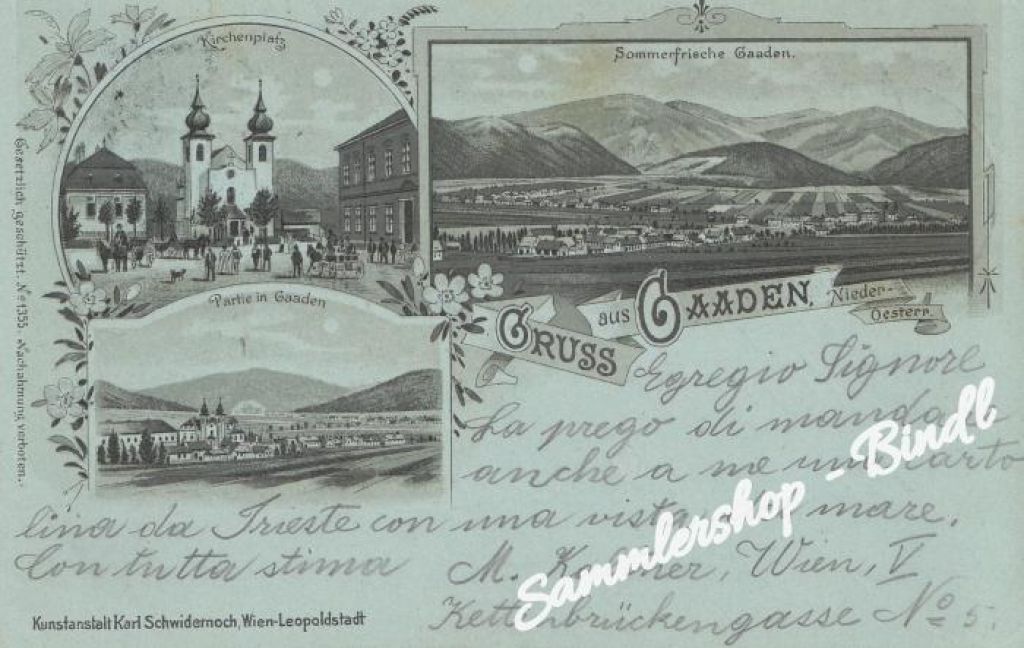 Kirchenplatz
Sommerfrische Gaaden.
Gesetzlich geschützt. No 1355 Nachahmung verboten.
Partie in Gaaden
GRUSS aus GAADEN, Nieder-
Oesterr.
Egregio Signore
La prego di manda
anche a me una carto
lina da Trieste con una vista mare.
Con tutta stima
M. Wien, V
Kettenbrückengasse No 5.
Sammlershop - Bindl
Kunstanstalt Karl Schwidernoch, Wien-Leopoldstadt